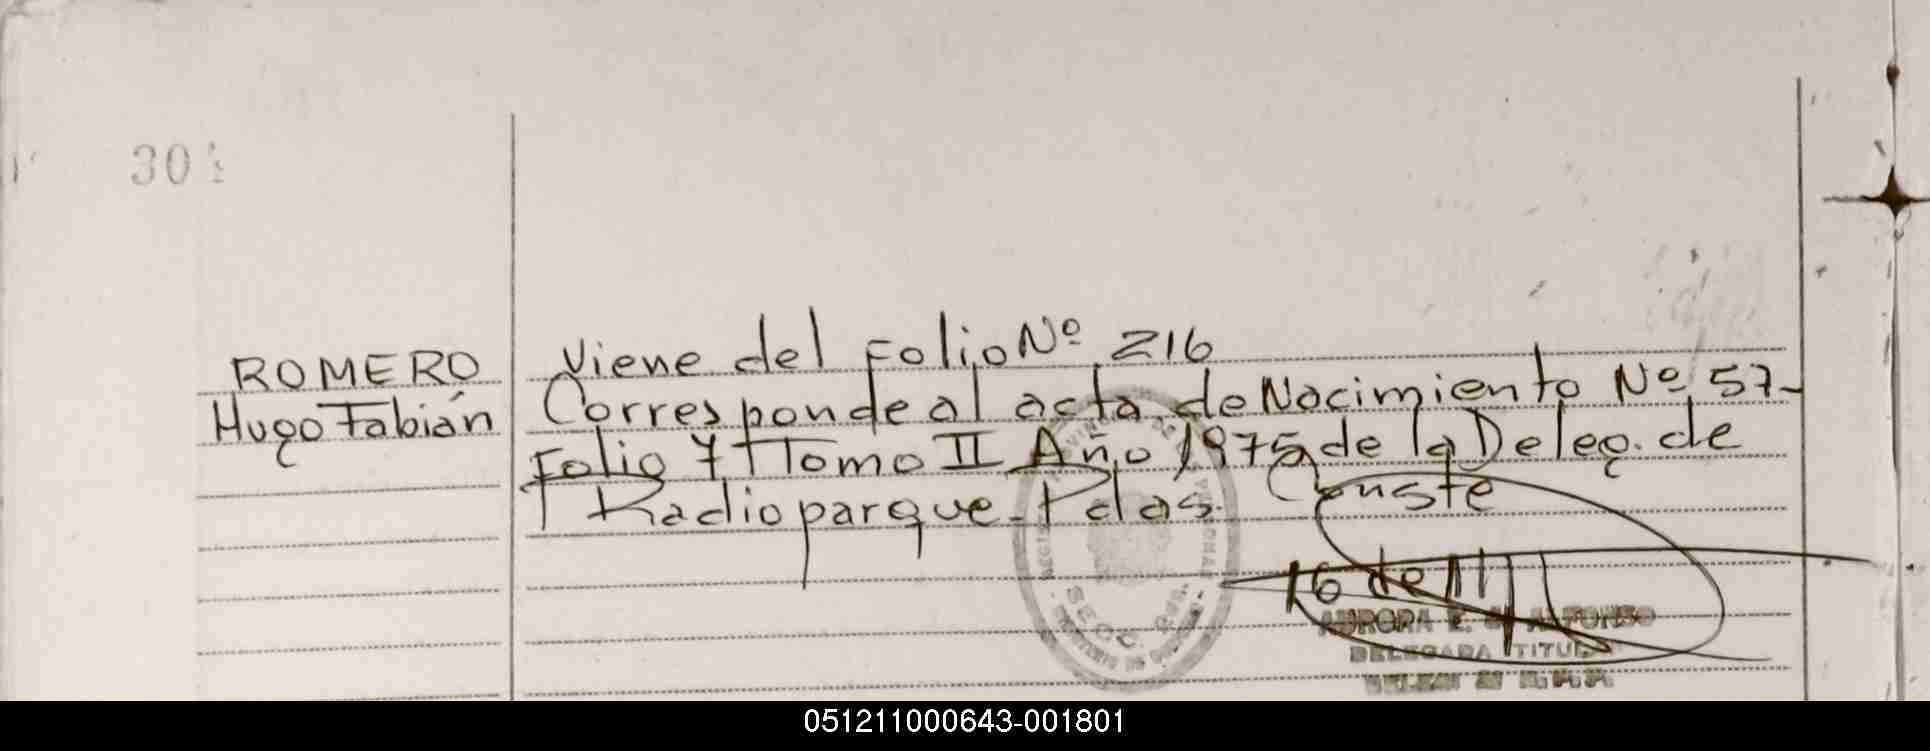 30
ROMERO
Hugo Fabián
Viene del Folio Nº 216
Corresponde al acta de Nacimiento Nº 57-
Folio 7 Tomo II Año 1975 de la Deleg. de
Radioparque - Pdas. Conste
16 de
AURORA E. ALFONSO
DELEGADA TITULAR
051211000643-001801